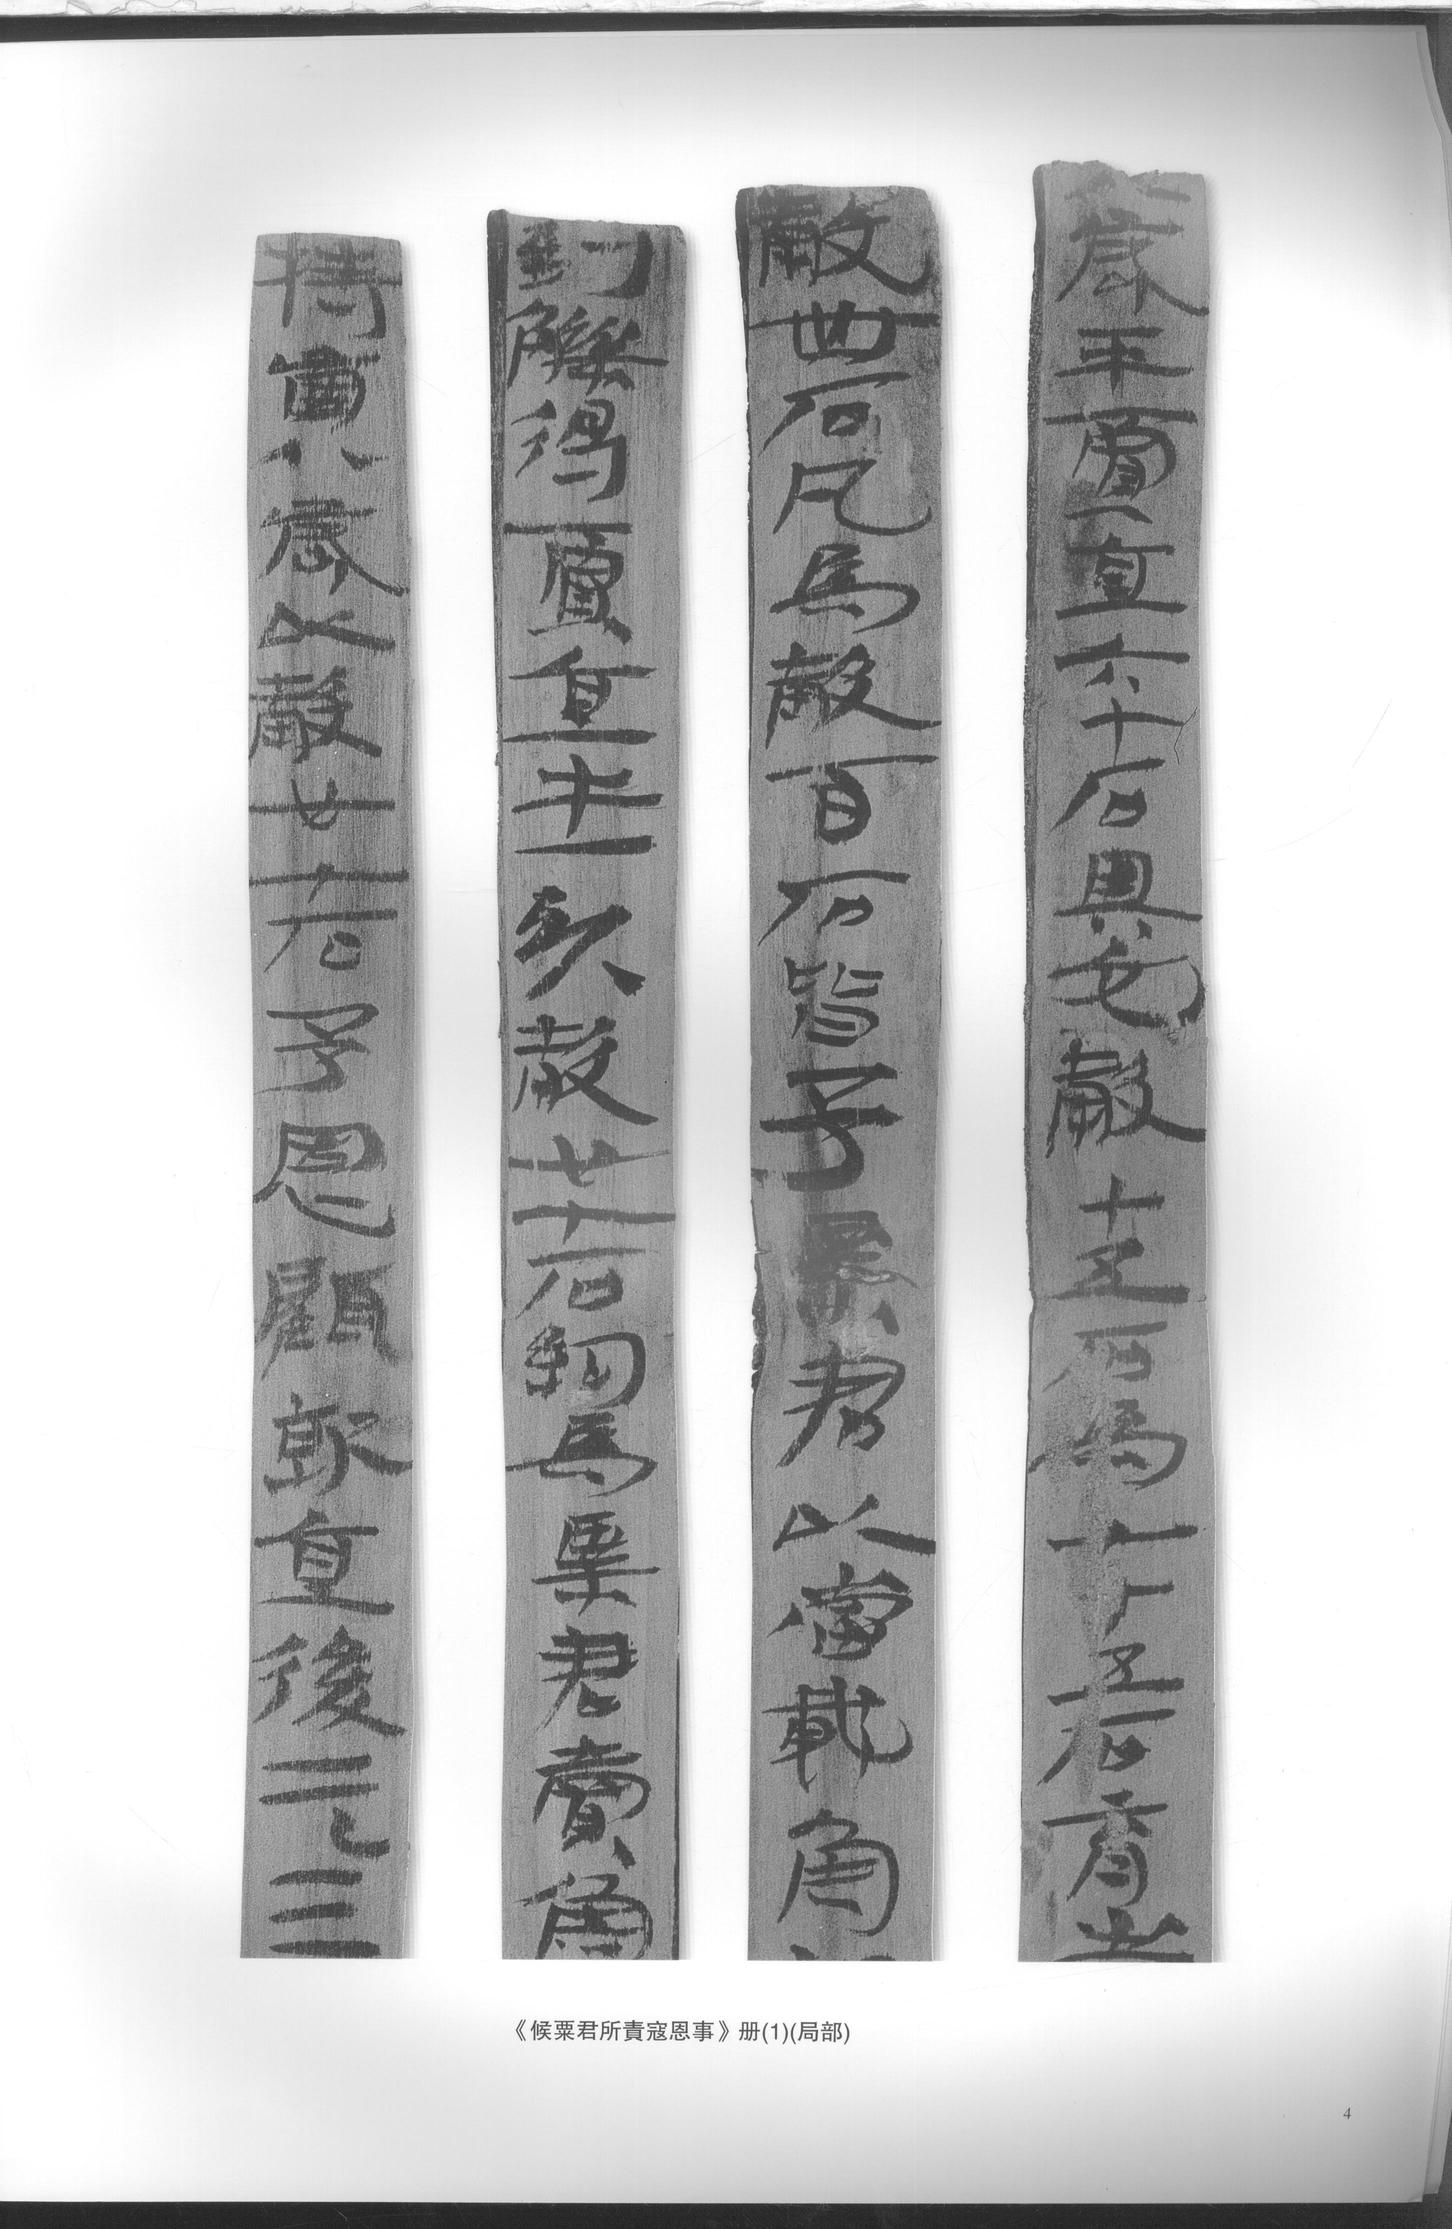 歲平賈直六十石與它穀十五石為七十五石育出
穀卌石凡為穀百石皆予粟君以當載魚
到觻得賈直牛一頭穀廿七石約為粟君賣魚
特齒八歲以穀廿七石予恩顧就直後二三
《候粟君所責寇恩事》册(1)(局部)
4